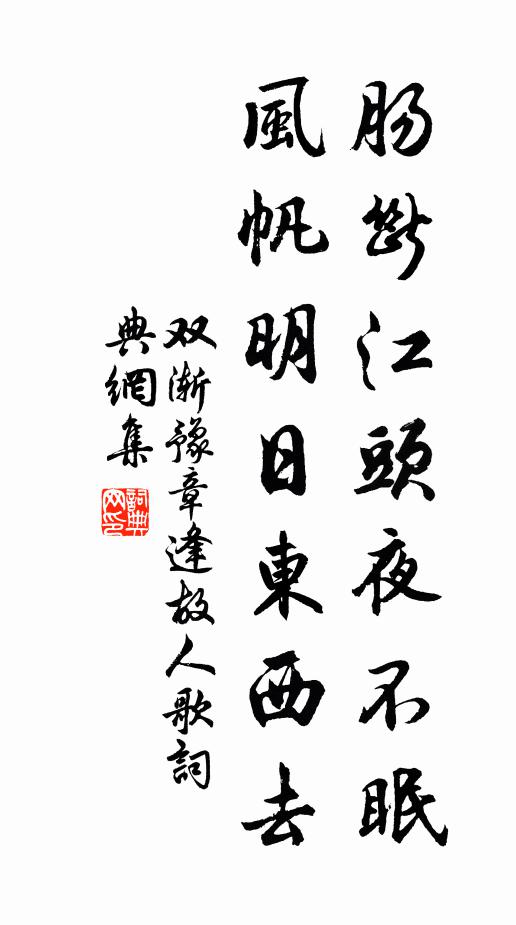 肠斷江頭夜不眠
風帆明日東西去
双漸豫章逢故人歌詞
典網集
詞典网印